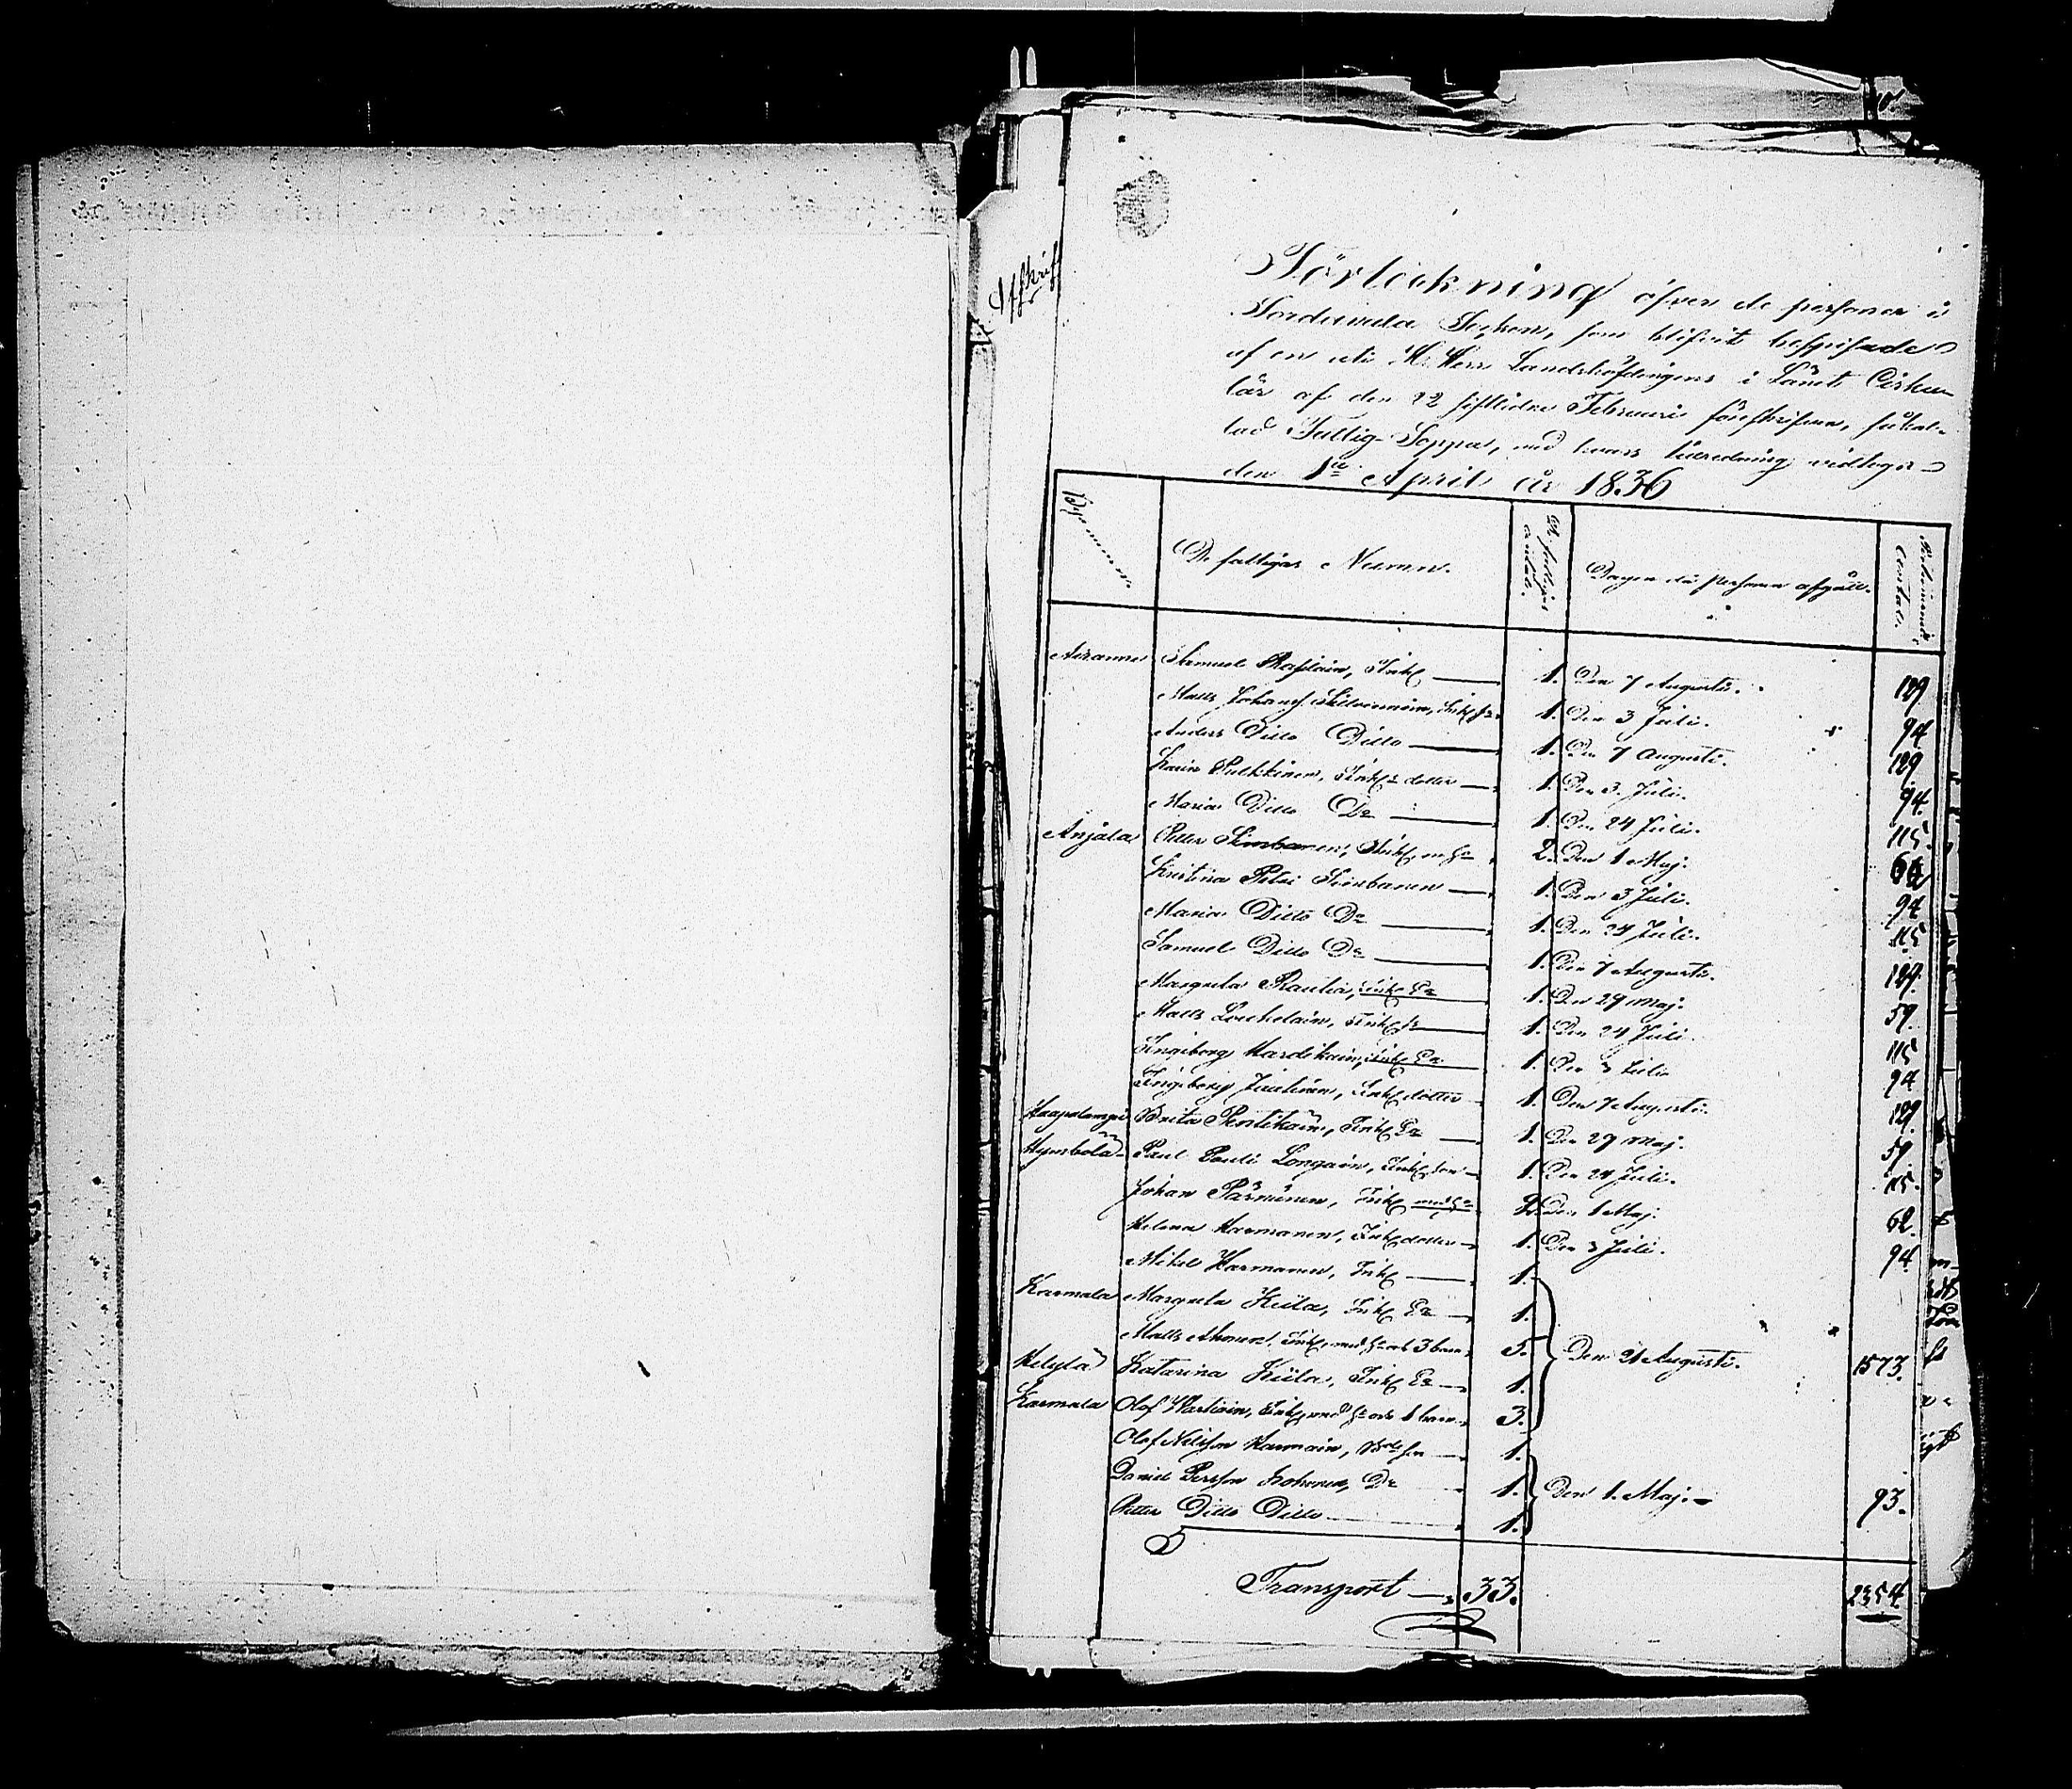 Afskrift
Förteckning öfver de personer i
Sordavala Socken, som blifvit bespisade
af en uti H. Herr Landshöfdingens i Länet Cirku-
lär af den 22 sistlidne Februari föreskrifven, så kal-
lad Fattig-Soppa, med hvars tillredning vidtogs
den 1ta April år 1836
Bynamn
De fattigas Namn.
De fattigas antal.
Dagen då personen afgått.
Portionernas antal.
Airanne Samuel Inh 1. Den 7 Augusti. 129
Matts Johansson Inh sn 1. Den 3 Juli. 94
Anders Ditto Ditto 1. Den 7 Augusti. 129
Karin Pulkkinen, Inhs dotter 1. Den 3. Juli. 94.
Maria Ditto Do 1. Den 24 Juli. 115.
Anjala Petter Simbanen, Inh, m hu 2. Den 1 Maj. 62
Kristina Petri Simbanen 1. Den 3 Juli. 94
Maria Ditto Do 1. Den 24 Juli. 115
Samuel Ditto Do 1. Den 7 Augusti. 129.
Margreta Rautia, Inh Ea 1. Den 29 Maj. 59.
Matts Inh sn 1. Den 24 Juli. 115
Ingeborg Inh Ea 1. Den 3 Juli 94
Ingeborg Inh dotter 1. Den 7 Augusti. 129.
Haapalampi Brita Pentikäin, Inh Ea 1. Den 29 Maj. 59
Hymbölä Paul Pauli Inh son 1. Den 24 Juli. 115.
Johan Pärninen, Inh med hu 2. Den 1 Maj. 62.
Helena Harmanen, Inh dotter 1. Den 3 Juli. 94.
Mikel Harmanen, Inh 1.
Karmala Margreta Kiila, Inh Ea 1.
Matts Ahonen, Inh, med hu och 3 barn 5. Den 21 Augusti. 1573.
Helylä Katarina Kiila, Inh Ea 1.
Karmala Olof Inh, med hu och 1 barn 3.
Olof Nilsson Harmain, 1.
Daniel Persson Kohonen, Do 1. Den 1. Maj. 93.
Petter Ditto Ditto 1.
Transport 33. 2354.